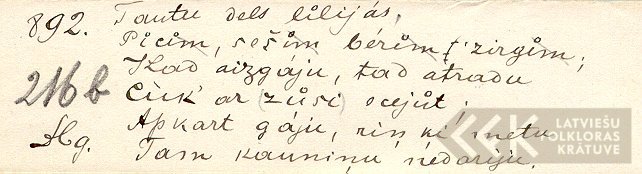 892. Tautu dels lilijás,
Picim, sešim bérim zirgim;
Kad aizgáju, tad atradu
216 b Cúk' ar (zúsi) ecejùt;
Apkart gáju, riņķi metu
Hg. Tam kauniņu nedariju.
LATVIEŠU
FOLKLORAS
KRĀTUVE